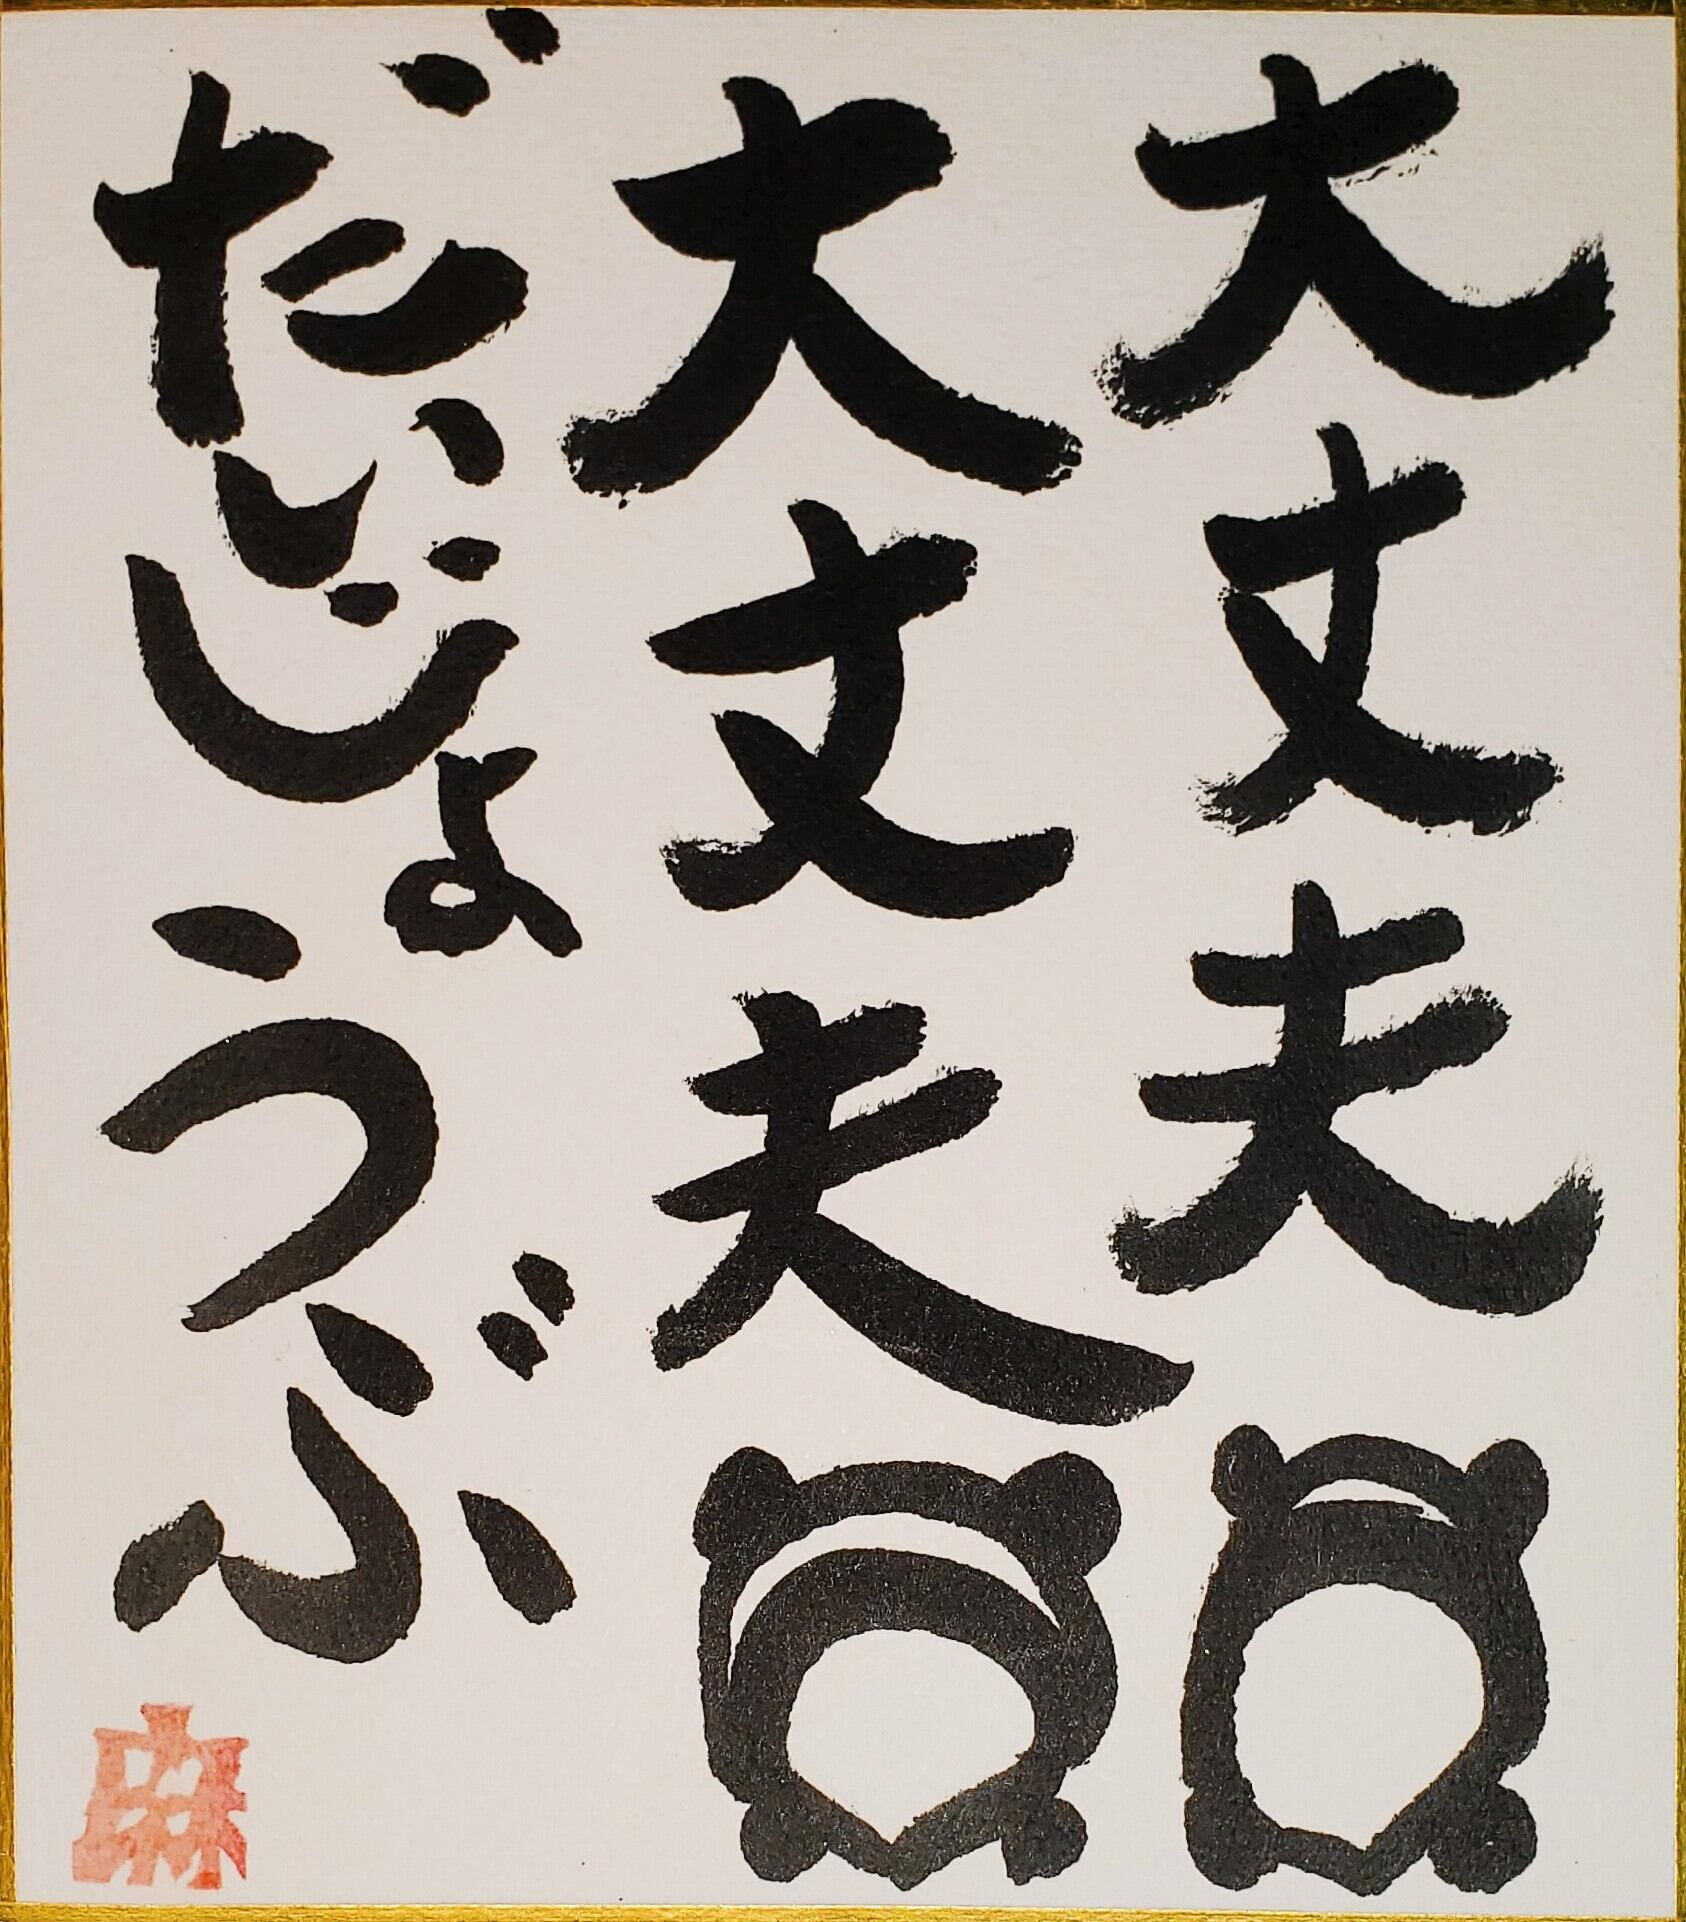 大丈夫
大丈夫
だいじょうぶ